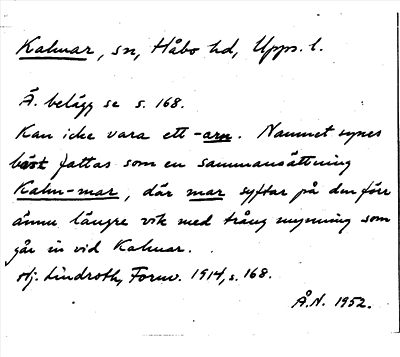 Kalmar, sn, Håbo hd, Upps. l.
Ä. belägg se s. 168.
Kan icke vara ett -arn. Namnet synes
bäst fattas som en sammansättning
Kalm-mar, där mar syftar på den förr
ännu längre vik med trång mynning som
går in vid Kalmar.
Hj. Lindroth, Fornv. 1914, s. 168.
Å.N. 1952.